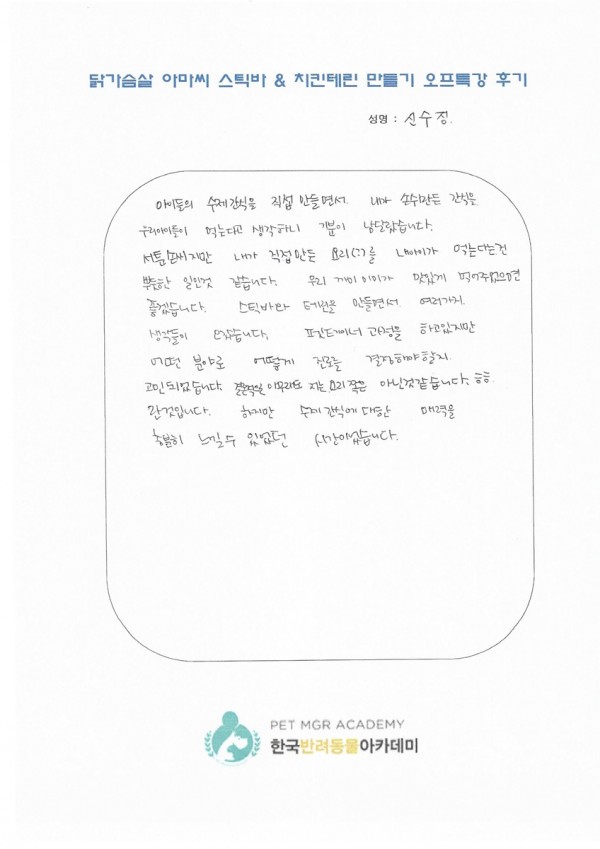 닭가슴살 아마씨 스틱바 & 치킨테린 만들기 오프특강 후기
성명 : 신수정.
아이들의 수제간식을 직접 만들면서. 내가 손수만든 간식을
우리아이들이 먹는다고 생각하니 기분이 남달랐습니다.
서툰솜씨지만 내가 직접만든 요리(?)를 내아이가 먹는다는건
뿌듯한 일인것 같습니다. 우리 거미 이미가 맛있게 먹어주었으면
좋겠습니다. 스틱바와 테린을 만들면서. 여러가지.
생각들이 났습니다. 과정을 하고있지만
어떤 분야로 어떻게 진로를 결정해야할지.
고민되었습니다. 아무래도 저는 요리쪽은 아닌것같습니다. ㅎㅎ.
것입니다. 하지만 수제간식에 대한 매력을
충분히 느낄수 있었던 시간이었습니다.
PET MGR ACADEMY
한국반려동물아카데미